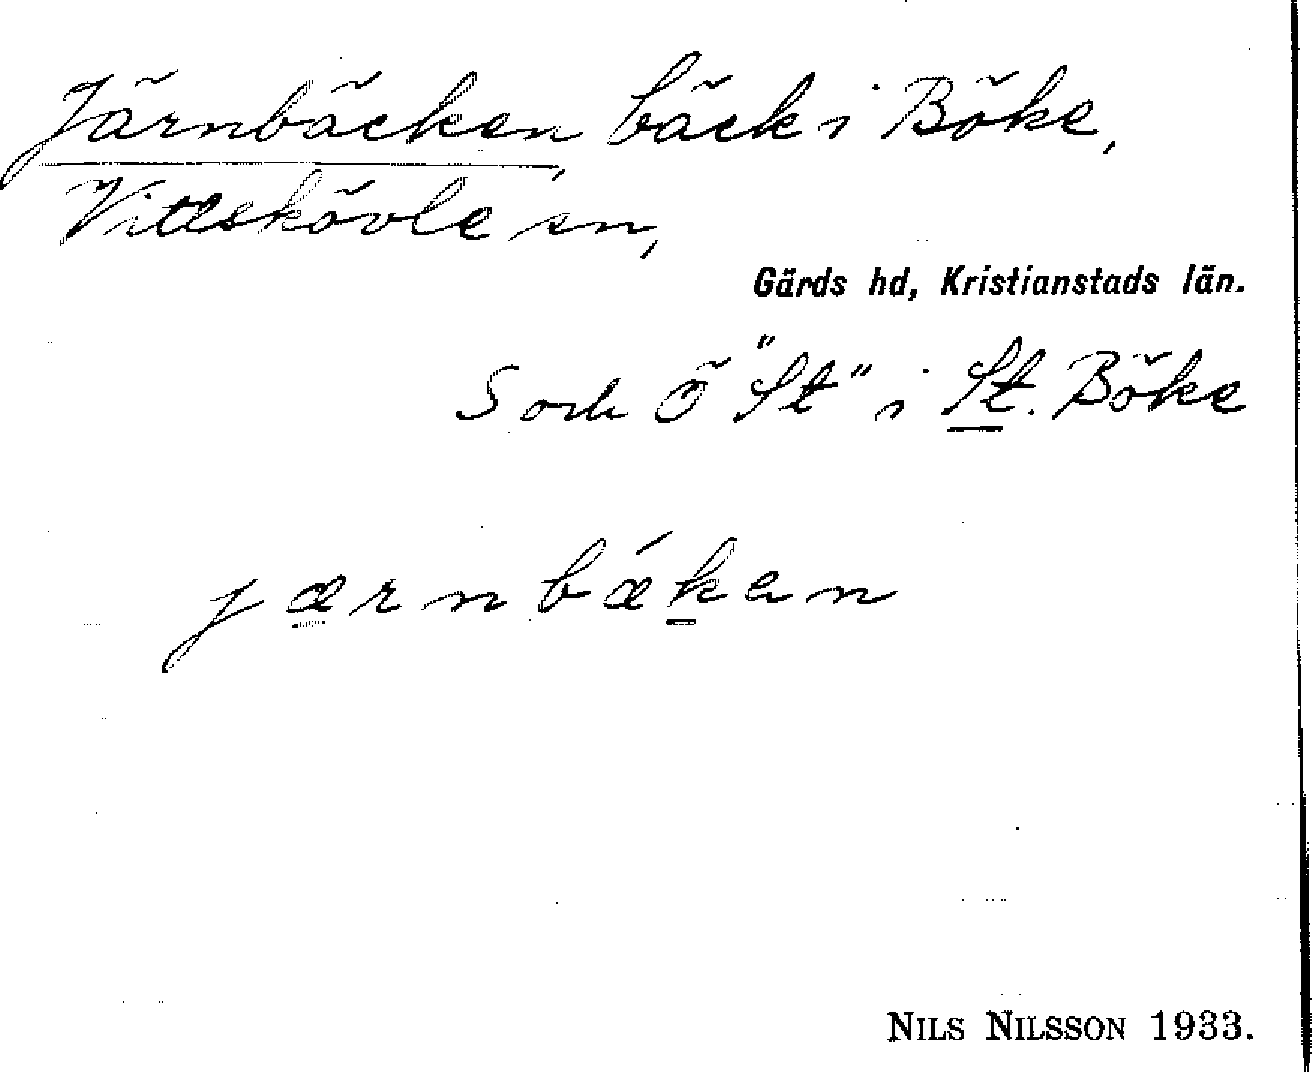 Järnbäcken, bäck i Böke,
Vittskövle sn,
Gärds hd, Kristianstads län.
S och Ö "St" i St. Böke
jærnbækan
NILS NILSSON 1933.